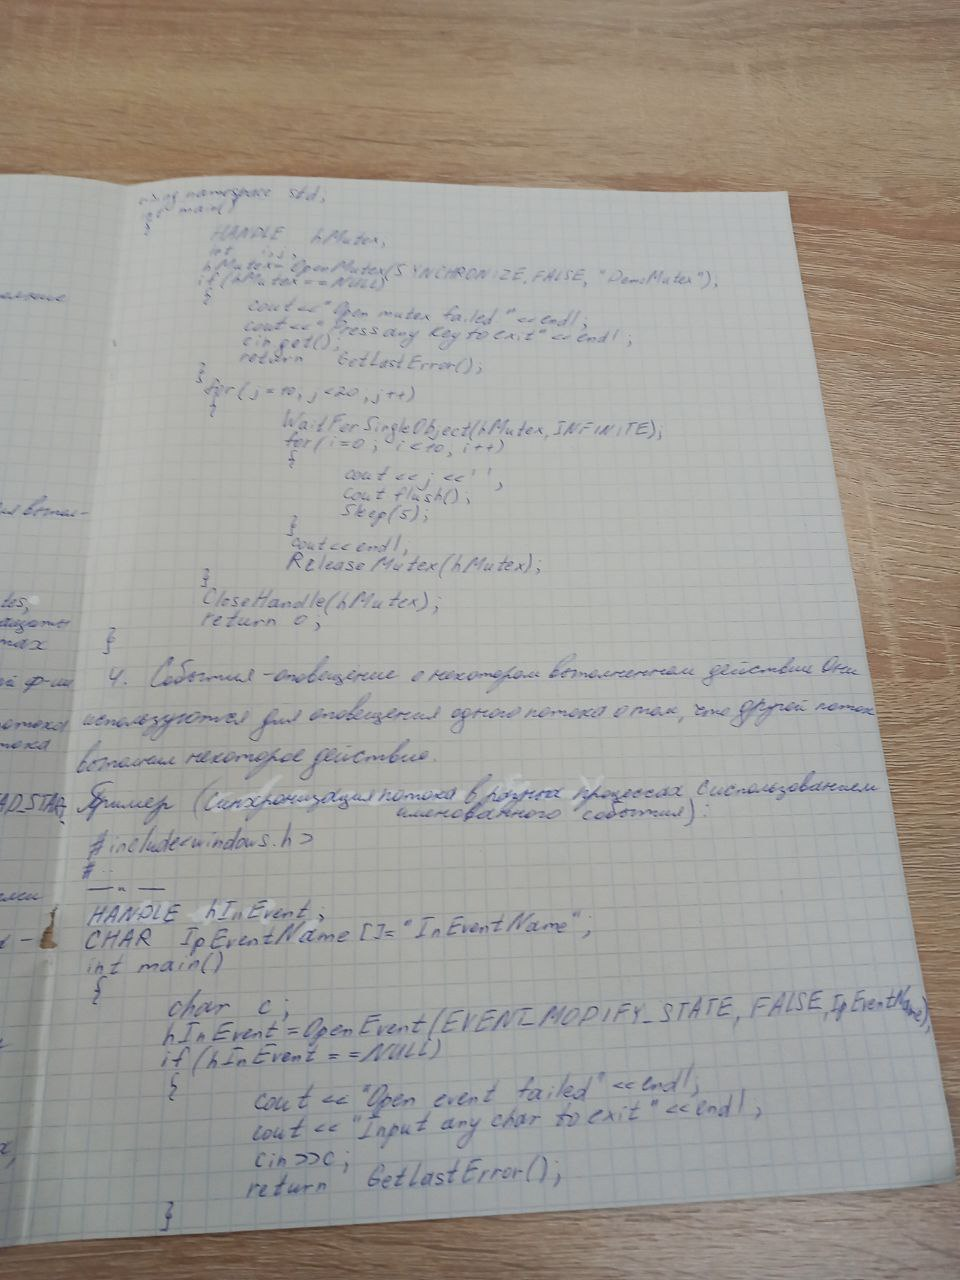 using namespace std;
int main()
{
HANDLE hMutex;
int i,j;
hMutex=OpenMutex(SYNCHRONIZE, FALSE, "DemoMutex");
if(hMutex==NULL)
{
cout<<"Open mutex failed."<<endl;
cout<<"Press any key to exit"<<endl;
cin.get();
return GetLastError();
}
for(j=10; j<20; j++)
{
WaitForSingleObject(hMutex, INFINITE);
for(i=0; i<10; i++)
{
cout<<j<<' ';
cout flush();
Sleep(5);
}
cout<<endl;
ReleaseMutex(hMutex);
}
CloseHandle(hMutex);
return 0;
}
4. События - оповещение о некотором выполненном действии Они
используются для оповещения одного потока о том, что другой поток
выполнил некоторое действие.
Пример (синхронизация потока в разных процессах с использованием
именованного события):
#include<windows.h>
#...
— " —
HANDLE hInEvent;
CHAR IpEventName[]="InEventName";
int main()
{
char c;
hInEvent=OpenEvent(EVENT_MODIFY_STATE, FALSE, IpEventName);
if(hInEvent==NULL)
{
cout<<"Open event failed"<<endl;
cout<<"Input any char to exit"<<endl;
cin>>c;
return GetLastError();
}